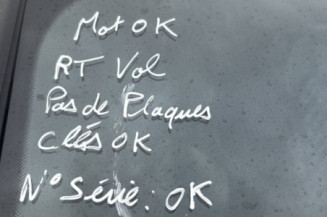 Mot OK
RT Vol
Pas de Plaques
Clés OK
N° Série : OK